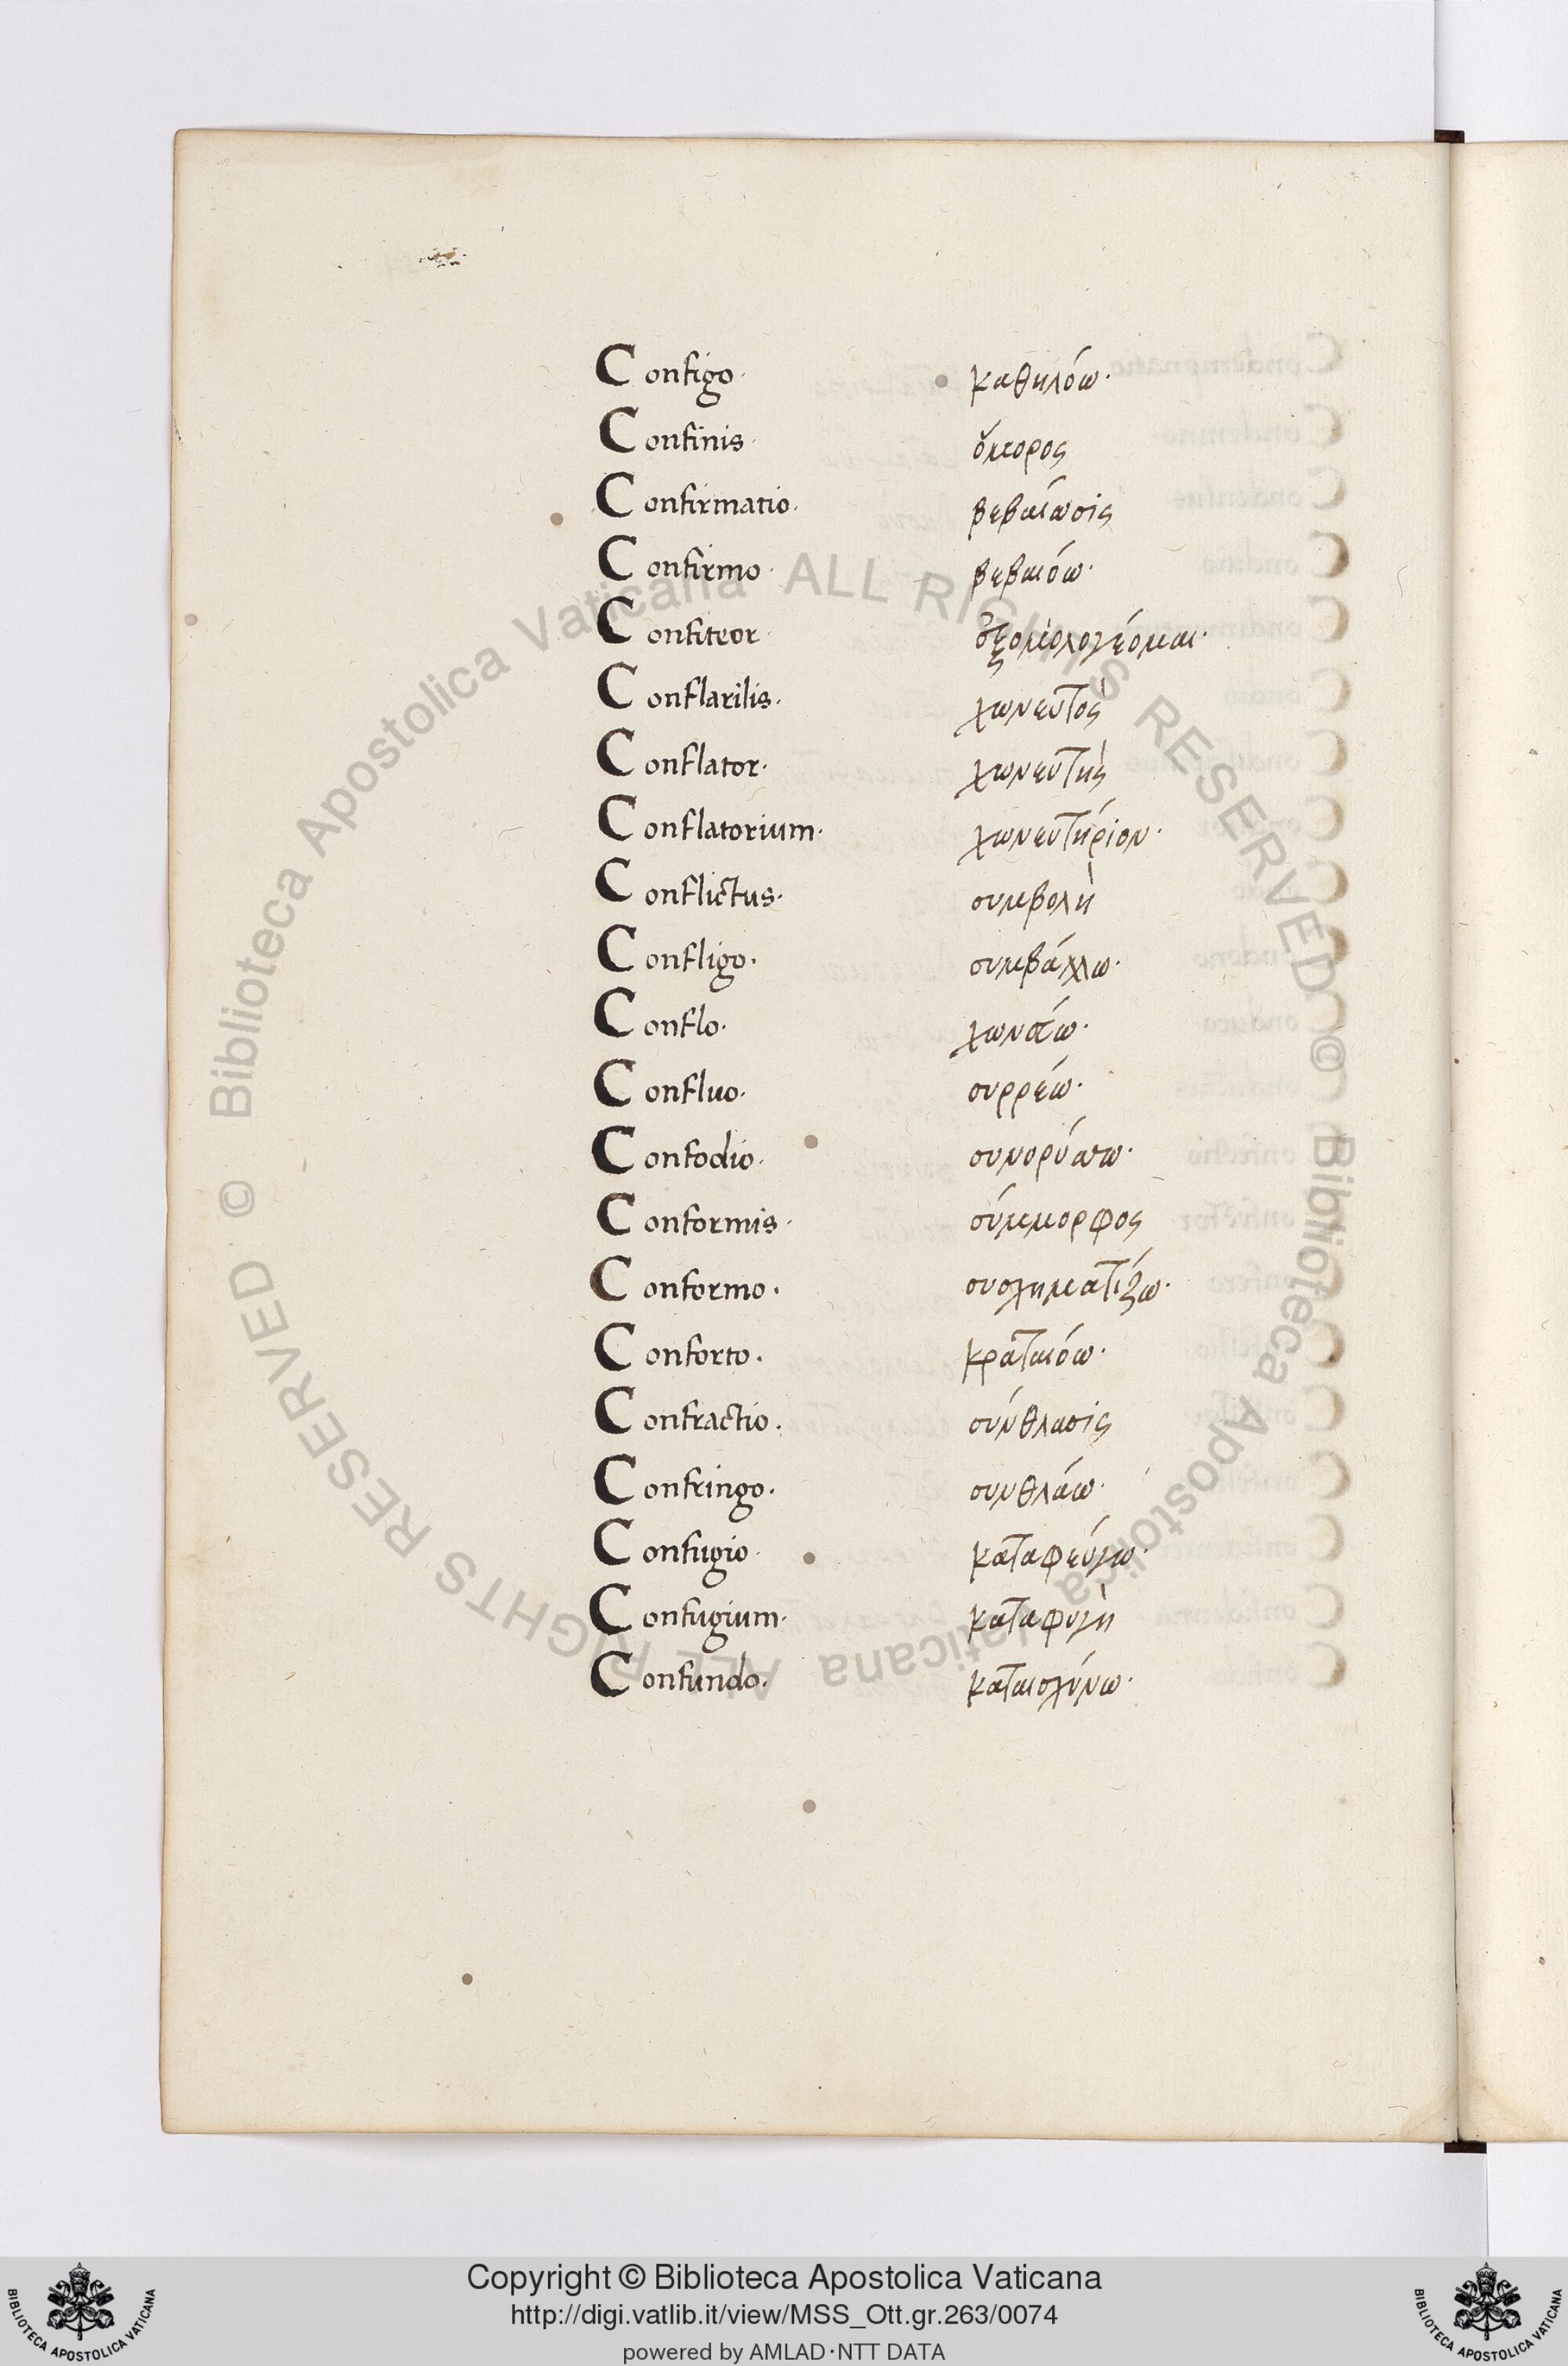 Configo· καθηλόω·
Confinis· ὅμορος
Confirmatio· βεβαίωσις
Confirmo· βεβαιόω·
Confiteor· ἐξομολογέομαι·
Conflatilis· χωνευτὸς
Conflator· χωνευτὴς
Conflatorium· χωνευτήριον·
Conflictus· συμβολὴ
Confligo· συμβάλλω·
Conflo· χωνεύω·
Confluo· συρρέω·
Confodio· συνορύσσω·
Conformis· σύμμορφος
Conformo· συσχηματίζω·
Conforto· κραταιόω·
Confractio· σύνθλασις
Confringo· συνθλάω·
Confugio· καταφεύγω·
Confugium· καταφυγὴ
Confundo· καταισχύνω·
© Biblioteca Apostolica Vaticana ALL RIGHTS RESERVED
© Biblioteca Apostolica Vaticana ALL RIGHTS RESERVED
Copyright © Biblioteca Apostolica Vaticana
http://digi.vatlib.it/view/MSS_Ott.gr.263/0074
powered by AMLAD·NTT DATA
BIBLIOTECA APOSTOLICA VATICANA
BIBLIOTECA APOSTOLICA VATICANA